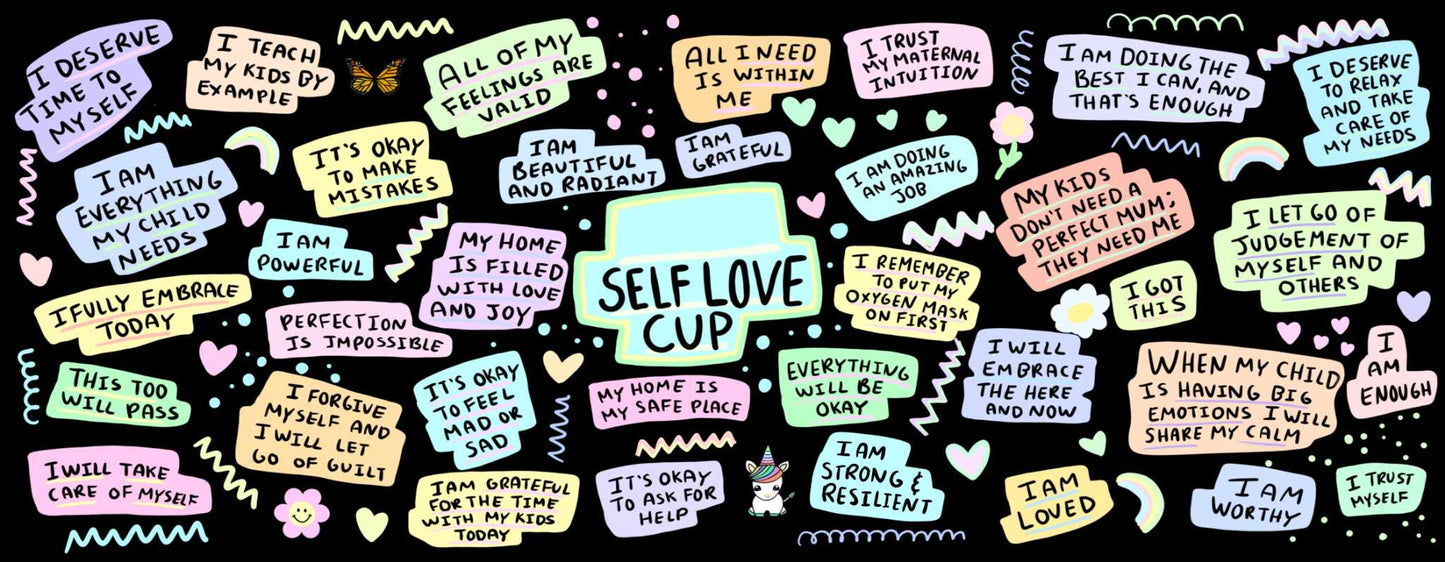 I DESERVE
TIME TO
MYSELF
I TEACH
MY KIDS BY
EXAMPLE
ALL OF MY
FEELINGS ARE
VALID
ALL I NEED
IS WITHIN
ME
I TRUST
MY MATERNAL
INTUITION
I AM DOING THE
BEST I CAN, AND
THAT'S ENOUGH
I DESERVE
TO RELAX
AND TAKE
CARE OF
MY NEEDS
I AM
EVERYTHING
MY CHILD
NEEDS
IT'S OKAY
TO MAKE
MISTAKES
I AM
BEAUTIFUL
AND RADIANT
I AM
GRATEFUL
I AM DOING
AN AMAZING
JOB
MY KIDS
DON'T NEED A
PERFECT MUM;
THEY NEED ME
I LET GO OF
JUDGEMENT OF
MYSELF AND
OTHERS
I AM
POWERFUL
MY HOME
IS FILLED
WITH LOVE
AND JOY
SELF LOVE
CUP
I REMEMBER
TO PUT MY
OXYGEN MASK
ON FIRST
I GOT
THIS
I FULLY EMBRACE
TODAY
PERFECTION
IS IMPOSSIBLE
THIS TOO
WILL PASS
I FORGIVE
MYSELF AND
I WILL LET
GO OF GUILT
IT'S OKAY
TO FEEL
MAD OR
SAD
MY HOME IS
MY SAFE PLACE
EVERYTHING
WILL BE
OKAY
I WILL
EMBRACE
THE HERE
AND NOW
WHEN MY CHILD
IS HAVING BIG
EMOTIONS I WILL
SHARE MY CALM
I
AM
ENOUGH
I WILL TAKE
CARE OF MYSELF
I AM GRATEFUL
FOR THE TIME
WITH MY KIDS
TODAY
IT'S OKAY
TO ASK FOR
HELP
I AM
STRONG &
RESILIENT
I AM
LOVED
I AM
WORTHY
I TRUST
MYSELF